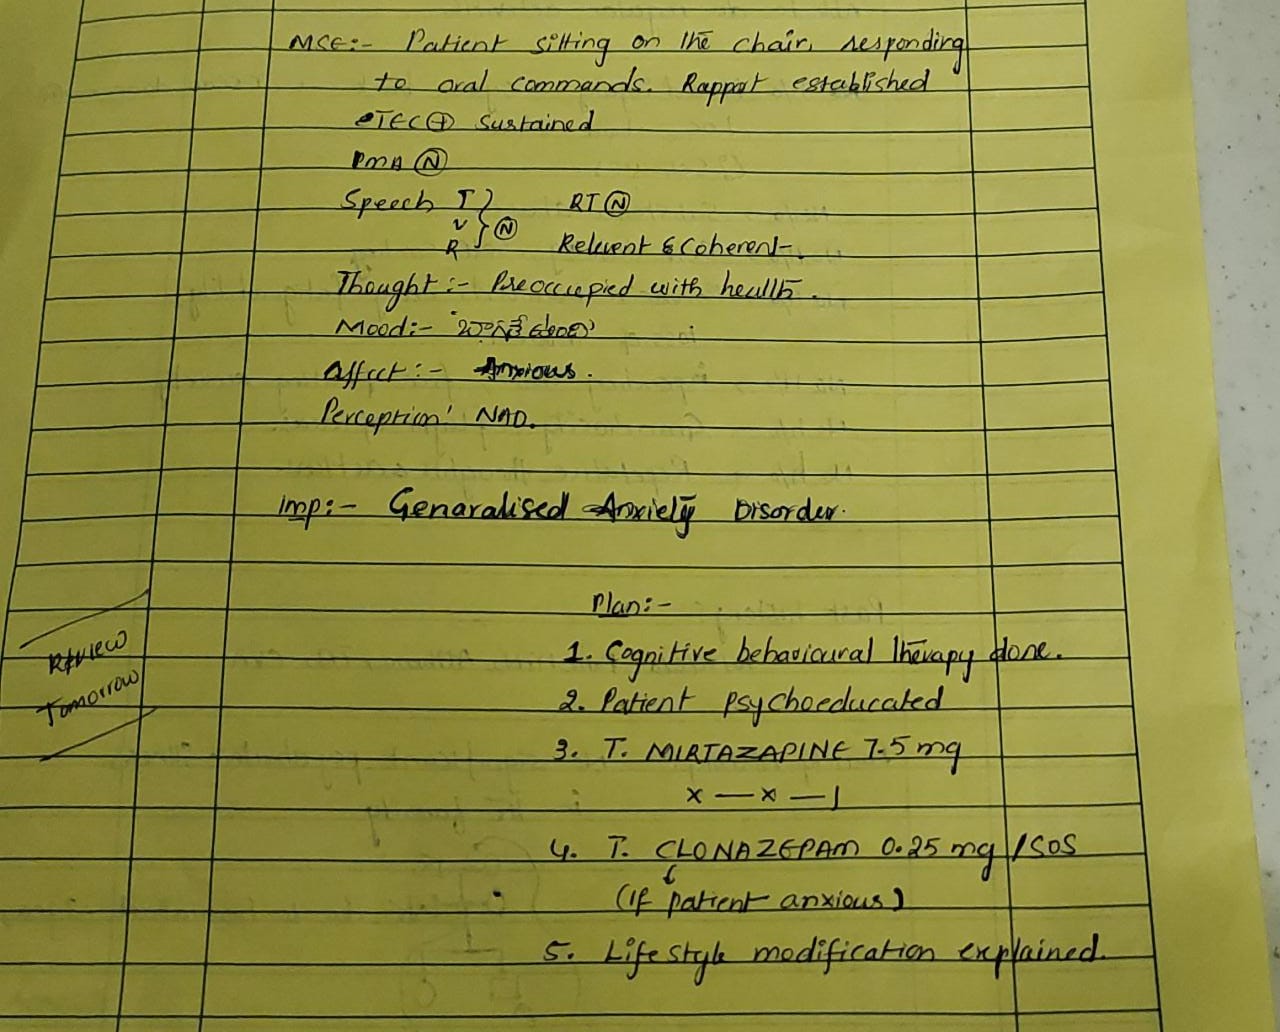 MSE:- Patient sitting on the chair, responding
to oral commands. Rapport established
ETEC⊕ Sustained
PMA Ⓝ
Speech T } RT Ⓝ
V } Ⓝ
R Relevent & Coherent.
Thought :- Preoccupied with health.
Mood:-
Affect :- Anxious.
Perception: NAD.
Imp:- Genaralised Anxiety Disorder.
Plan:-
1. Cognitive behavioural therapy done.
2. Patient psychoeducated
3. T. MIRTAZAPINE 7.5 mg
x — x — 1
Review
Tomorrow
4. T. CLONAZEPAM 0.25 mg /SOS
(If patient anxious)
5. Life style modification explained.